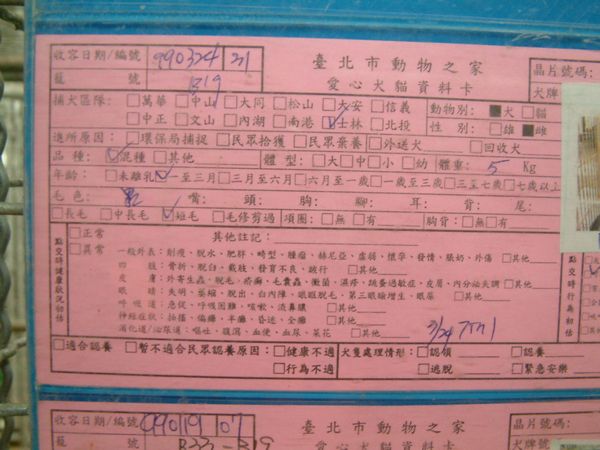 收容日期/編號 990324 21 臺北市動物之家 晶片號碼:
籠號 B19 愛心犬貓資料卡 犬牌
捕犬區隊: □萬華 □中山 □大同 □松山 □大安 □信義 動物別: ■犬 □貓
□中正 □文山 □內湖 □南港 ☑士林 □北投 性別: □雄 ■雌
進所原因: □環保局捕捉 □民眾拾獲 □民眾棄養 □外送犬 □回收犬
品種: ☑混種 □其他 體型: □大 □中 □小 □幼 體重: 5 Kg
年齡: □未離乳 ☑至三月 □三月至六月 □六月至一歲 □一歲至三歲 □三至七歲 □七歲以上
毛色: 黑 嘴: 頭: 胸: 腳: 耳: 背: 尾:
□長毛 □中長毛 ☑短毛 □毛修剪過 項圈: □無 □有 胸背: □無 □有
點交時健康狀況初估 □正常 其他註記:
□異常 一般外表: 削瘦、脫水、肥胖、畸型、腫瘤、赫尼亞、虛弱、懷孕、發情、脹奶、外傷 □其他
四肢: 骨折、脫臼、截肢、發育不良、跛行 □其他
皮膚: 外寄生蟲、脫毛、疥癬、毛囊蟲、黴菌、濕疹、跳蚤過敏症、皮屑、內分泌失調 □其他
眼睛: 失明、萎縮、脫出、白內障、眼瞼脫毛、第三眼瞼增生、眼屎 □其他
呼吸道: 急促、呼吸困難、咳嗽、流鼻膿 □其他
神經症狀: 抽搐、偏癱、半癱、昏迷、全癱 □其他
消化道/泌尿道: 嘔吐、腹瀉、血便、血尿、菜花 □其他 3/24
點交時行為初估
□適合認養 □暫不適合民眾認養原因: □健康不適 犬隻處理情形: □認領 □認養
□行為不適 □逃脫 □緊急安樂
收容日期/編號 990119 07 臺北市動物之家 晶片號碼:
籠號 B33-B19 愛心犬貓資料卡 犬牌號碼